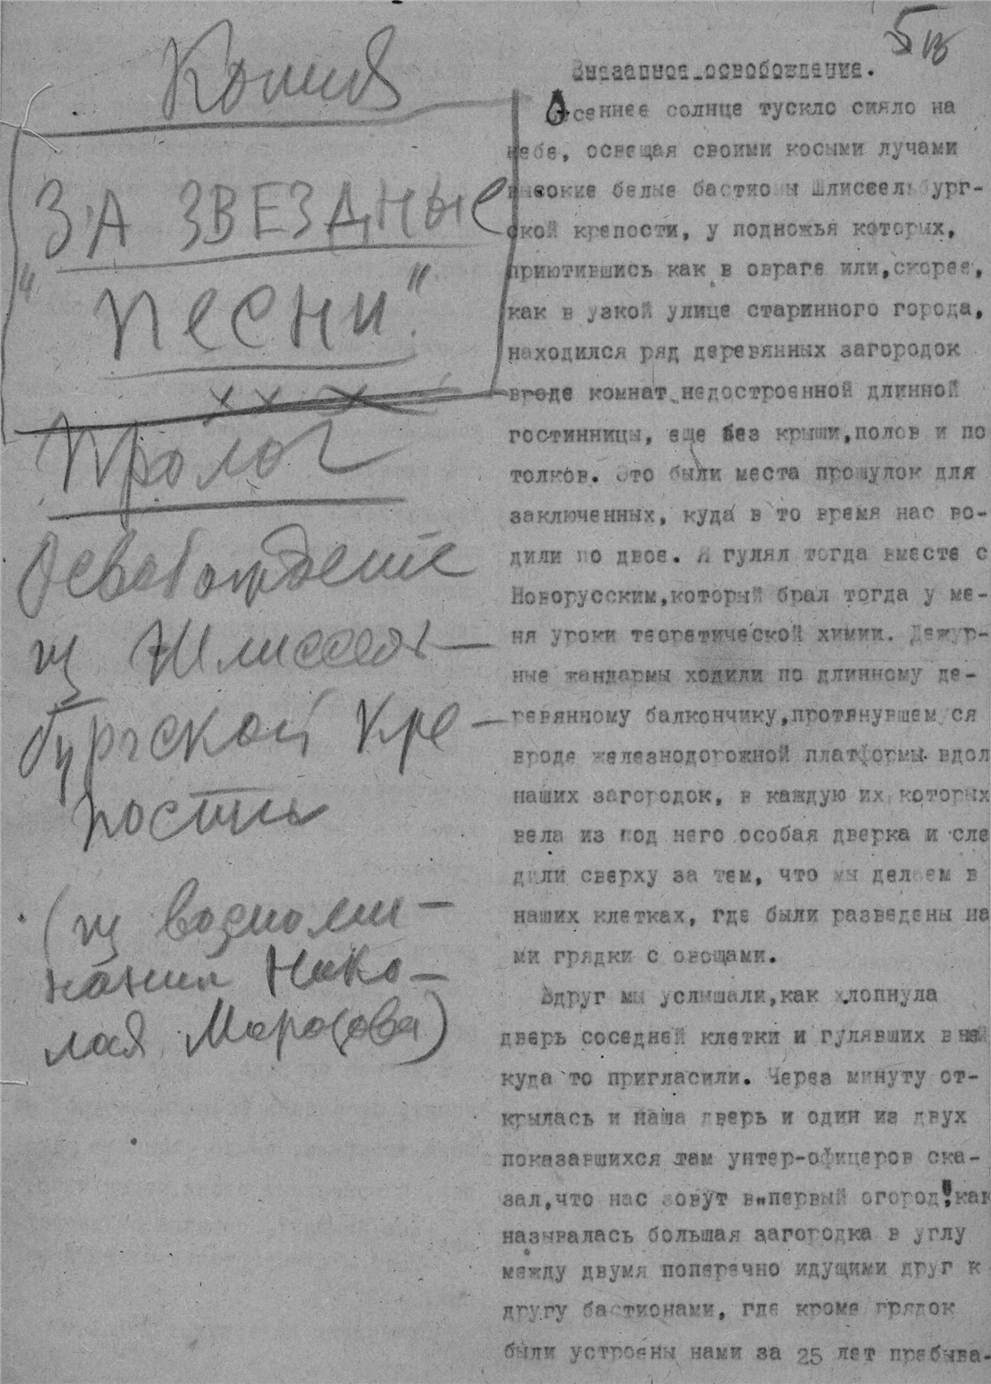 Копия
ЗА ЗВЕЗДНЫЕ
"ПЕСНИ".
Пролог
Освобождение
из Шлиссель-
бургской кре-
пости
(из воспоми-
нания Нико-
лая Морозова)
5
Внезапное освобождение.
Осеннее солнце тускло сияло на
небе, освещая своими косыми лучами
высокие белые бастионы Шлиссельбург-
ской крепости, у подножья которых,
приютившись как в овраге или,скорее,
как в узкой улице старинного города,
находился ряд деревянных загородок
вроде комнат недостроенной длинной
гостинницы, еще без крыши,полов и по
толков. Это были места прогулок для
заключенных, куда в то время нас во-
дили по двое. Я гулял тогда вместе с
Новорусским,который брал тогда у ме-
ня уроки теоретической химии. Дежур-
ные жандармы ходили по длинному де-
ревянному балкончику,протянувшемуся
вроде железнодорожной платформы вдол
наших загородок, в каждую их которых
вела из под него особая дверка и сле
дили сверху за тем, что мы делаем в
наших клетках, где были разведены на
ми грядки с овощами.
Вдруг мы услышали,как хлопнула
дверь соседней клетки и гулявших в ней
куда то пригласили. Через минуту от-
крылась и наша дверь и один из двух
показавшихся там унтер-офицеров ска-
зал,что нас зовут в "первый огород",как
называлась большая загородка в углу
между двумя поперечно идущими друг к
другу бастионами, где кроме грядок
были устроены нами за 25 лет пребыва-